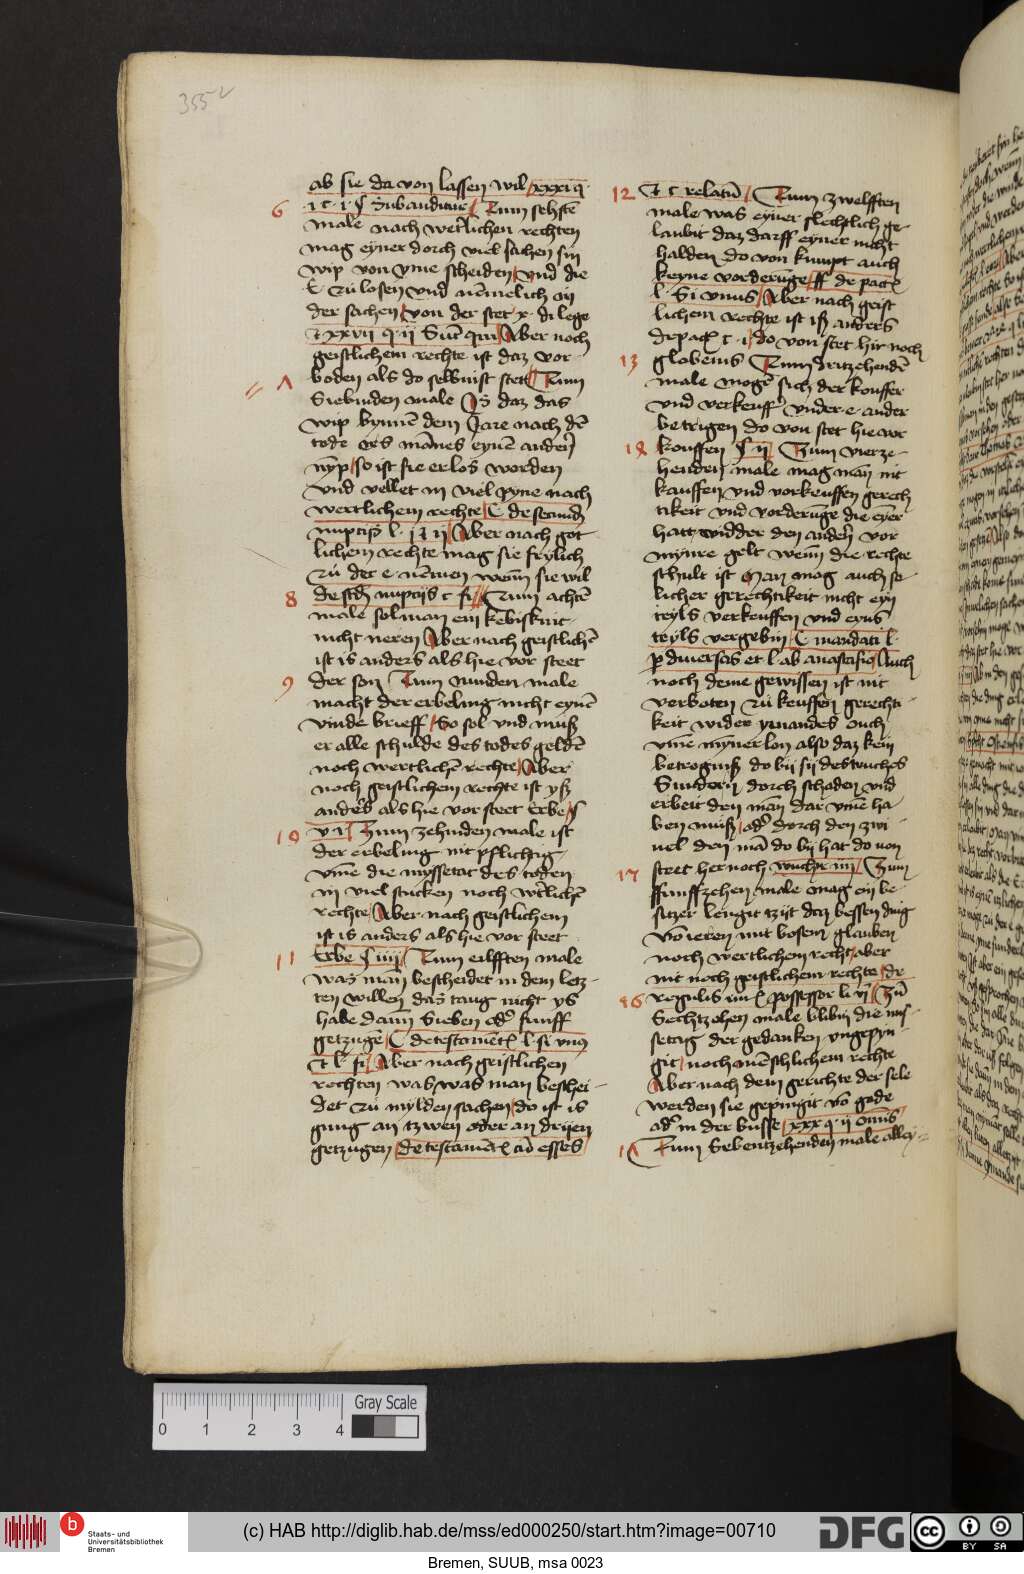 355v
ab sie da von lassen wil / xxxi q̄
6 · i c · i · § Subauditur / Zum sehstē
male nach wertlichen rechten
mag eyner dorch viel sachen sin
wip von yme scheiden / vnd die
E · zů losen vnd nemelich on
der sachen / von der stet · x · di lege
et xxvii q · ii Sūt qui / Aber noch
geistlichem rechte ist daz vor
7 boden als do selbinst stet / Zum
Siebinden male Is daz das
wip bynnē dem Jare nach dē
tode ores mannes eynē andern̄
nȳp / so ist sie erlos worden
vnd vellet in viel pyne nach
wertlichem rechte / C de secundis
nuptijs l · i 2 ij / Aber nach got
lichem rechte mag sie frylich
zů der e · nēmen wenn̄ sie wil
8 de secūdis nuptijs c fi / Zum achtē
male sol man ein kebiskint
nicht neren / Aber nach geistlichē
ist is anders als hie vor steet
9 der son Zum nunden male
macht der erbeling nicht eynē
vinde brieff / So sol vnd muß
er alle schulde des todes geldē
noch wertlichē rechte / Aber
noch geistlichem rechte ist yß
anders als hie vor steet Erbe / §
10 vi / Zum zehinden male ist
der erbeling nit pflichtig
vme die myssetat des toden
in viel stucken noch wtlichē
rechte / Aber nach geistlichem
ist is anders als hie vor steet
11 Erbe § iiij / Zum eilfften male
was man̄ bescheidet in dem letz-
ten willen das taug nicht ys
habe dann̄ Sieben ader funff
getzugē / C de testamēt l · si vnꝰ
et l · fi / Aber nach geistlichen
rechten was was man beschei-
det zů mylden sachen / do ist is
gnug an tzwen oder an drijen
getzugen / de testamēt cū esses
12 et c relatū / Zum zwelfften
male was eyner slechtlich ge-
laubit daz darff eyner nicht
halden do von kumpt auch
keyne vorderūge / ff de pact
l · Si vnus / Aber nach geist
lichem rechte ist iß anders
de pact c · i / do von stet hir noch
13 globenis Zum dritzehendē
male mogē sich der kouffer
vnd verkeuffer vnder · e · ander
betrigen do von stet hie vor
14 kouffen § ij / Zum vierze-
henden male mag man̄ nit
kauffen vnd vorkeuffen gerech
tikeit vnd vorderūge die eyner
hatt wydder den andern̄ vor
mynre gelt wenn̄ die rechte
schult ist Man mag auch so-
licher gerechtikeit nicht eyn
teyls verkeuffen vnd eyns
teyls vergebin / C mandati l ·
per diuersas et l · ab anastasio / Auch
noch deme gewissen ist nit
verboten zů keuffen gerechti-
keit wider ymandes ouch
vme mynner lon also daz kein
betrogniß do bij sij des tuuches
Sunder ij dorch schaden vnd
erbeit den man̄ dar vme ha-
ben muß / ader dorch den zwi-
uel den mā do bij hat do von
steet her noch wucher iiij / Zum
15 ffunffzehen male mag ein be-
sitzer lengit tzijt daz bessen ding
vō ieren mit bosem glauben
noch wertlichem recht / aber
nit noch geistlichem rechte / de
16 regulis iur possessor li vi / Zū
Sechtzehen male blibin die mis-
setag der gedanken vngepyn-
git / noch mēschlichem rechte
Aber nach dem gerichte der sele
werden sie gepingit vō gode
ader in der busse / xxx q · ii om̄is
17 Zum Sebentzehenden male alley-
0 1 2 3 4
Gray Scale
b Staats- und
Universitätsbibliothek
Bremen
(c) HAB http://diglib.hab.de/mss/ed000250/start.htm?image=00710
DFG
cc BY SA
Bremen, SUUB, msa 0023